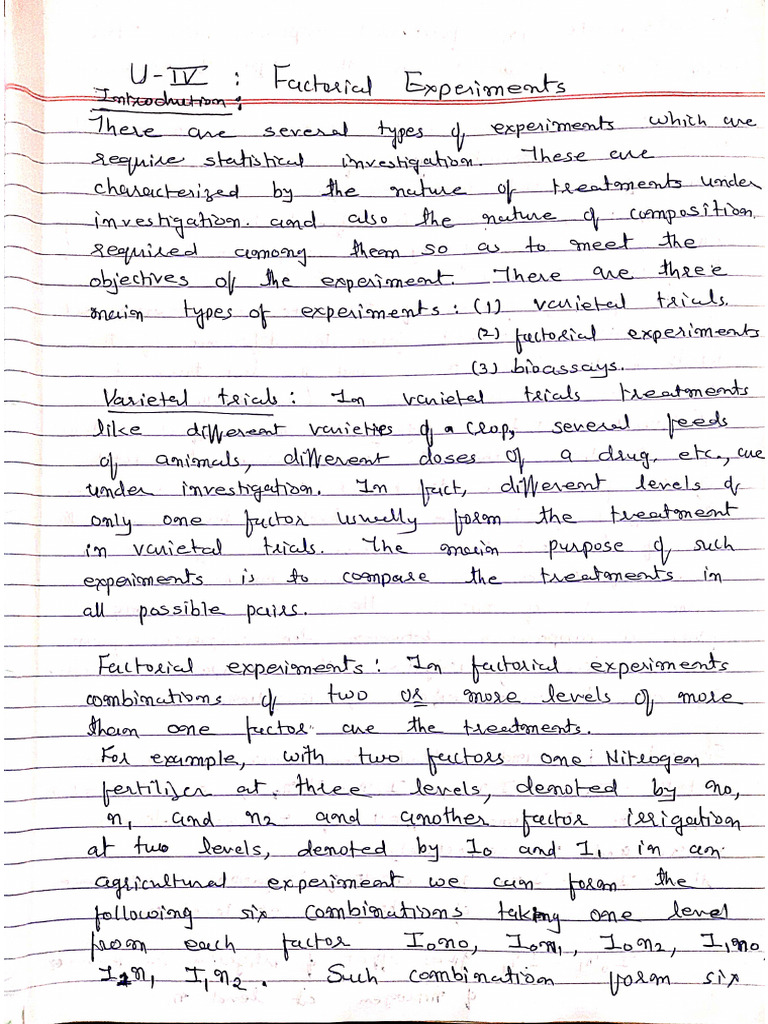 U-IV : Factorial Experiments
Introduction:
There are several types of experiments which are
require statistical investigation. These are
characterized by the nature of treatments under
investigation. and also the nature of composition
required among them so as to meet the
objectives of the experiment. There are three
main types of experiments : (1) varietal trials.
(2) factorial experiments
(3) bioassays.
Varietal trials : In varietal trials treatments
like different varieties of a crop, several feeds
of animals, different doses of a drug. etc., are
under investigation. In fact, different levels of
only one factor usually form the treatment
in varietal trials. The main purpose of such
experiments is to compare the treatments in
all possible pairs.
Factorial experiments : In factorial experiments
combinations of two or more levels of more
than one factor. are the treatments.
For example, with two factors one Nitrogen
fertilizer at three levels, denoted by n0,
n1 and n2 and another factor irrigation
at two levels, denoted by I0 and I1 in an
agricultural experiment we can form the
following six combinations taking one level
from each factor I0n0, I0n1, I0n2, I1n0
n1, I1n2. Such combination form six